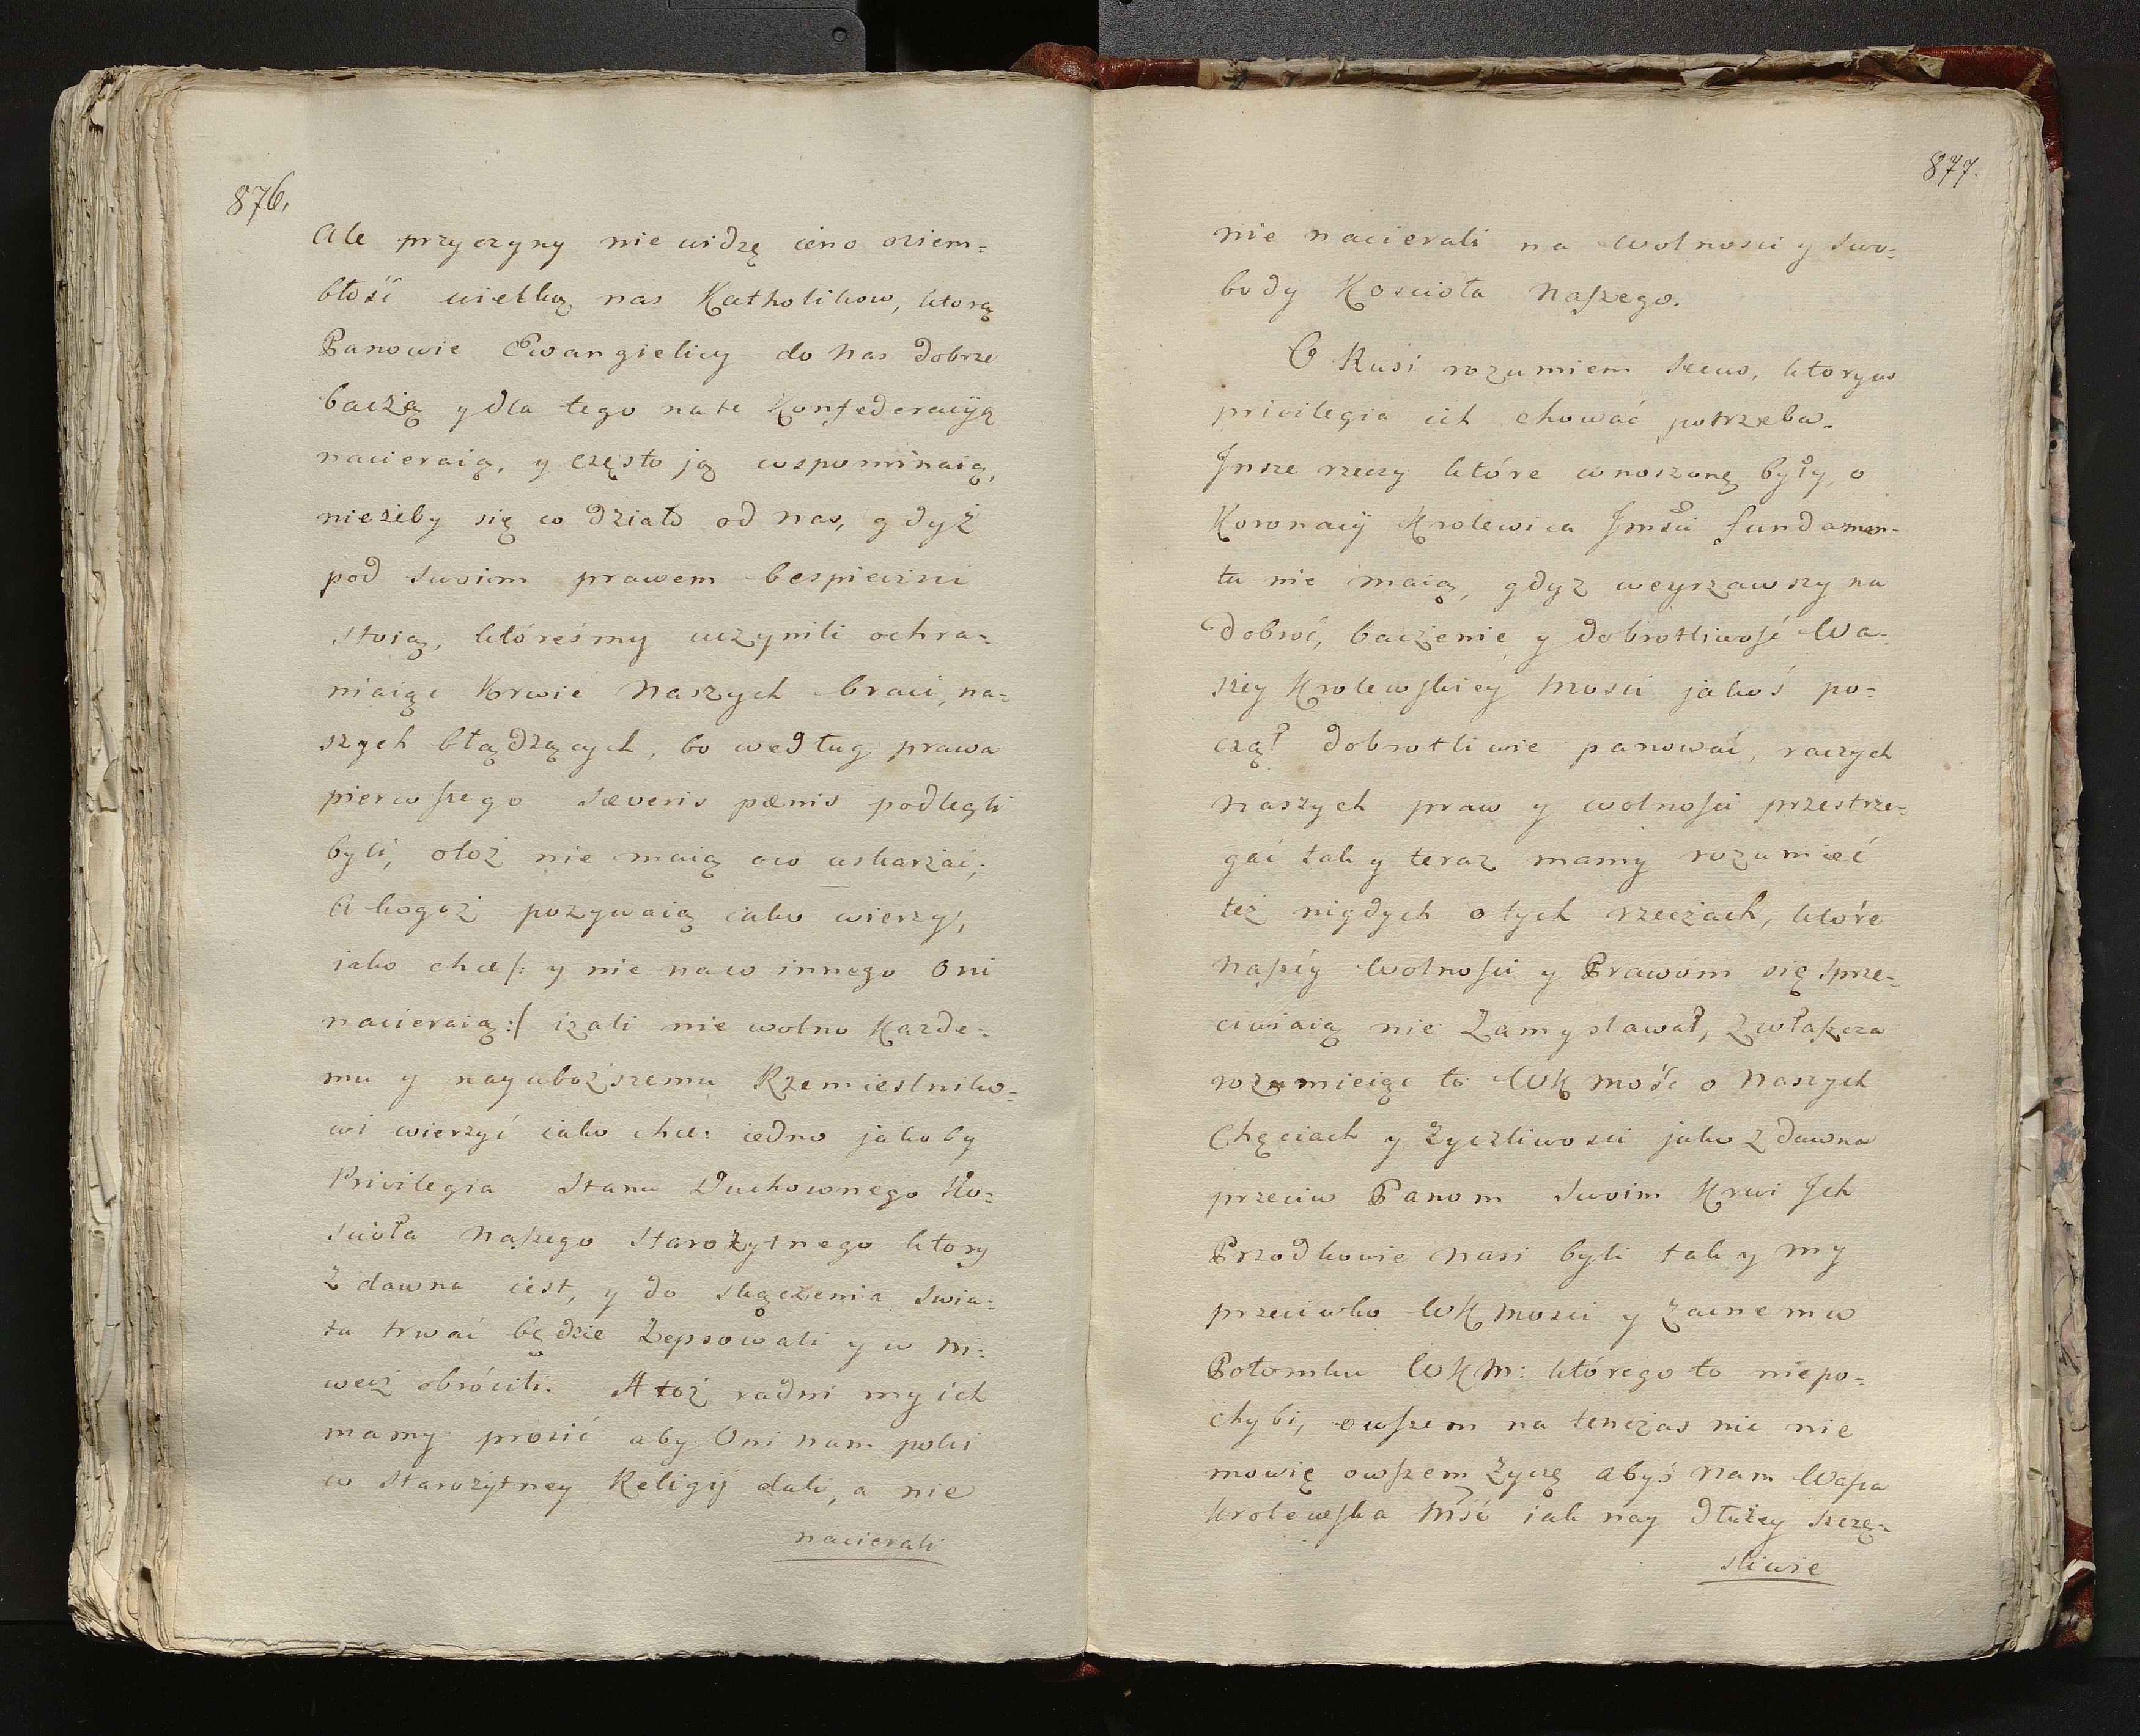 876.
Ale przyczyny nie widzę ieno oziem=
błość wielką nas Katholikow, ktorą
Panowie Ewangielicy do nas dobrze
baczą y dla tego na te Konfederacyią
nacieraią, y często ją wspominaią,
nieżeby się co działo od nas, gdyż
pod swoim prawem bespieczni
stoią, któreśmy uczynili ochra=
niaiąc Krwie Naszych braci, na=
szych błądzących, bo według prawa
pierwszego sæveris pænis podlegli
byli, otoż nie maią oco uskarżać;
A kogoż pozywaią iako wierzy,
iako chce/: y nie naco innego Oni
nacieraią:/ izali nie wolno Kazde=
mu y nayuboższemu Rzemieslniko=
wi wierzyć iako chce: iedno jakoby
Privilegia Stanu Duchownego Ko=
scioła Naszego Starożytnego ktory
Z dawna iest, y do skączenia swia=
ta trwać będzie Zepsowali y w ni=
wecz obrócili. Atoż radni my ich
mamy prosić aby Oni nam poki
w Starożytney Religij dali, a nie
nacierali
877.
nie nacierali na Wolnosci y Swo=
body Koscioła Naszego.
O Rusi rozumiem Secus, ktorym
privilegia ich chować potrzeba.
Insze rzeczy które wnoszonę były, o
Koronacij Krolewica Jmsci fundamen=
tu nie maią, gdyz weyrzawszy na
Dobroć, baczenie y dobrotliwość Wa=
szey Krolewskiey Mosci jakoś po=
czął dobrotliwie panować, raczych
Naszych praw y wolności przestrze=
gać tak y teraz mamy rozumieć
też nigdych o tych rzeczach, które
Naszéy Wolności y Prawóm się sprze=
ciwiaią nie Zamyslawał, Zwłaszcza
rozumieiąc to WK Mość o Naszych
Chęciach y Zyczliwosci jako Z dawna
przeciw Panom Swoim Krwi Ich
Przodkowie Nasi byli tak y my
przeciwko WK Mosci y Zacnemu
Potomku WKM: którego to niepo=
chybi, owszem na tenczas nic nie
mowię owszem Zyczę abyś Nam Wasza
Krolewska Mść iak nay dłużey szczę=
sliwie